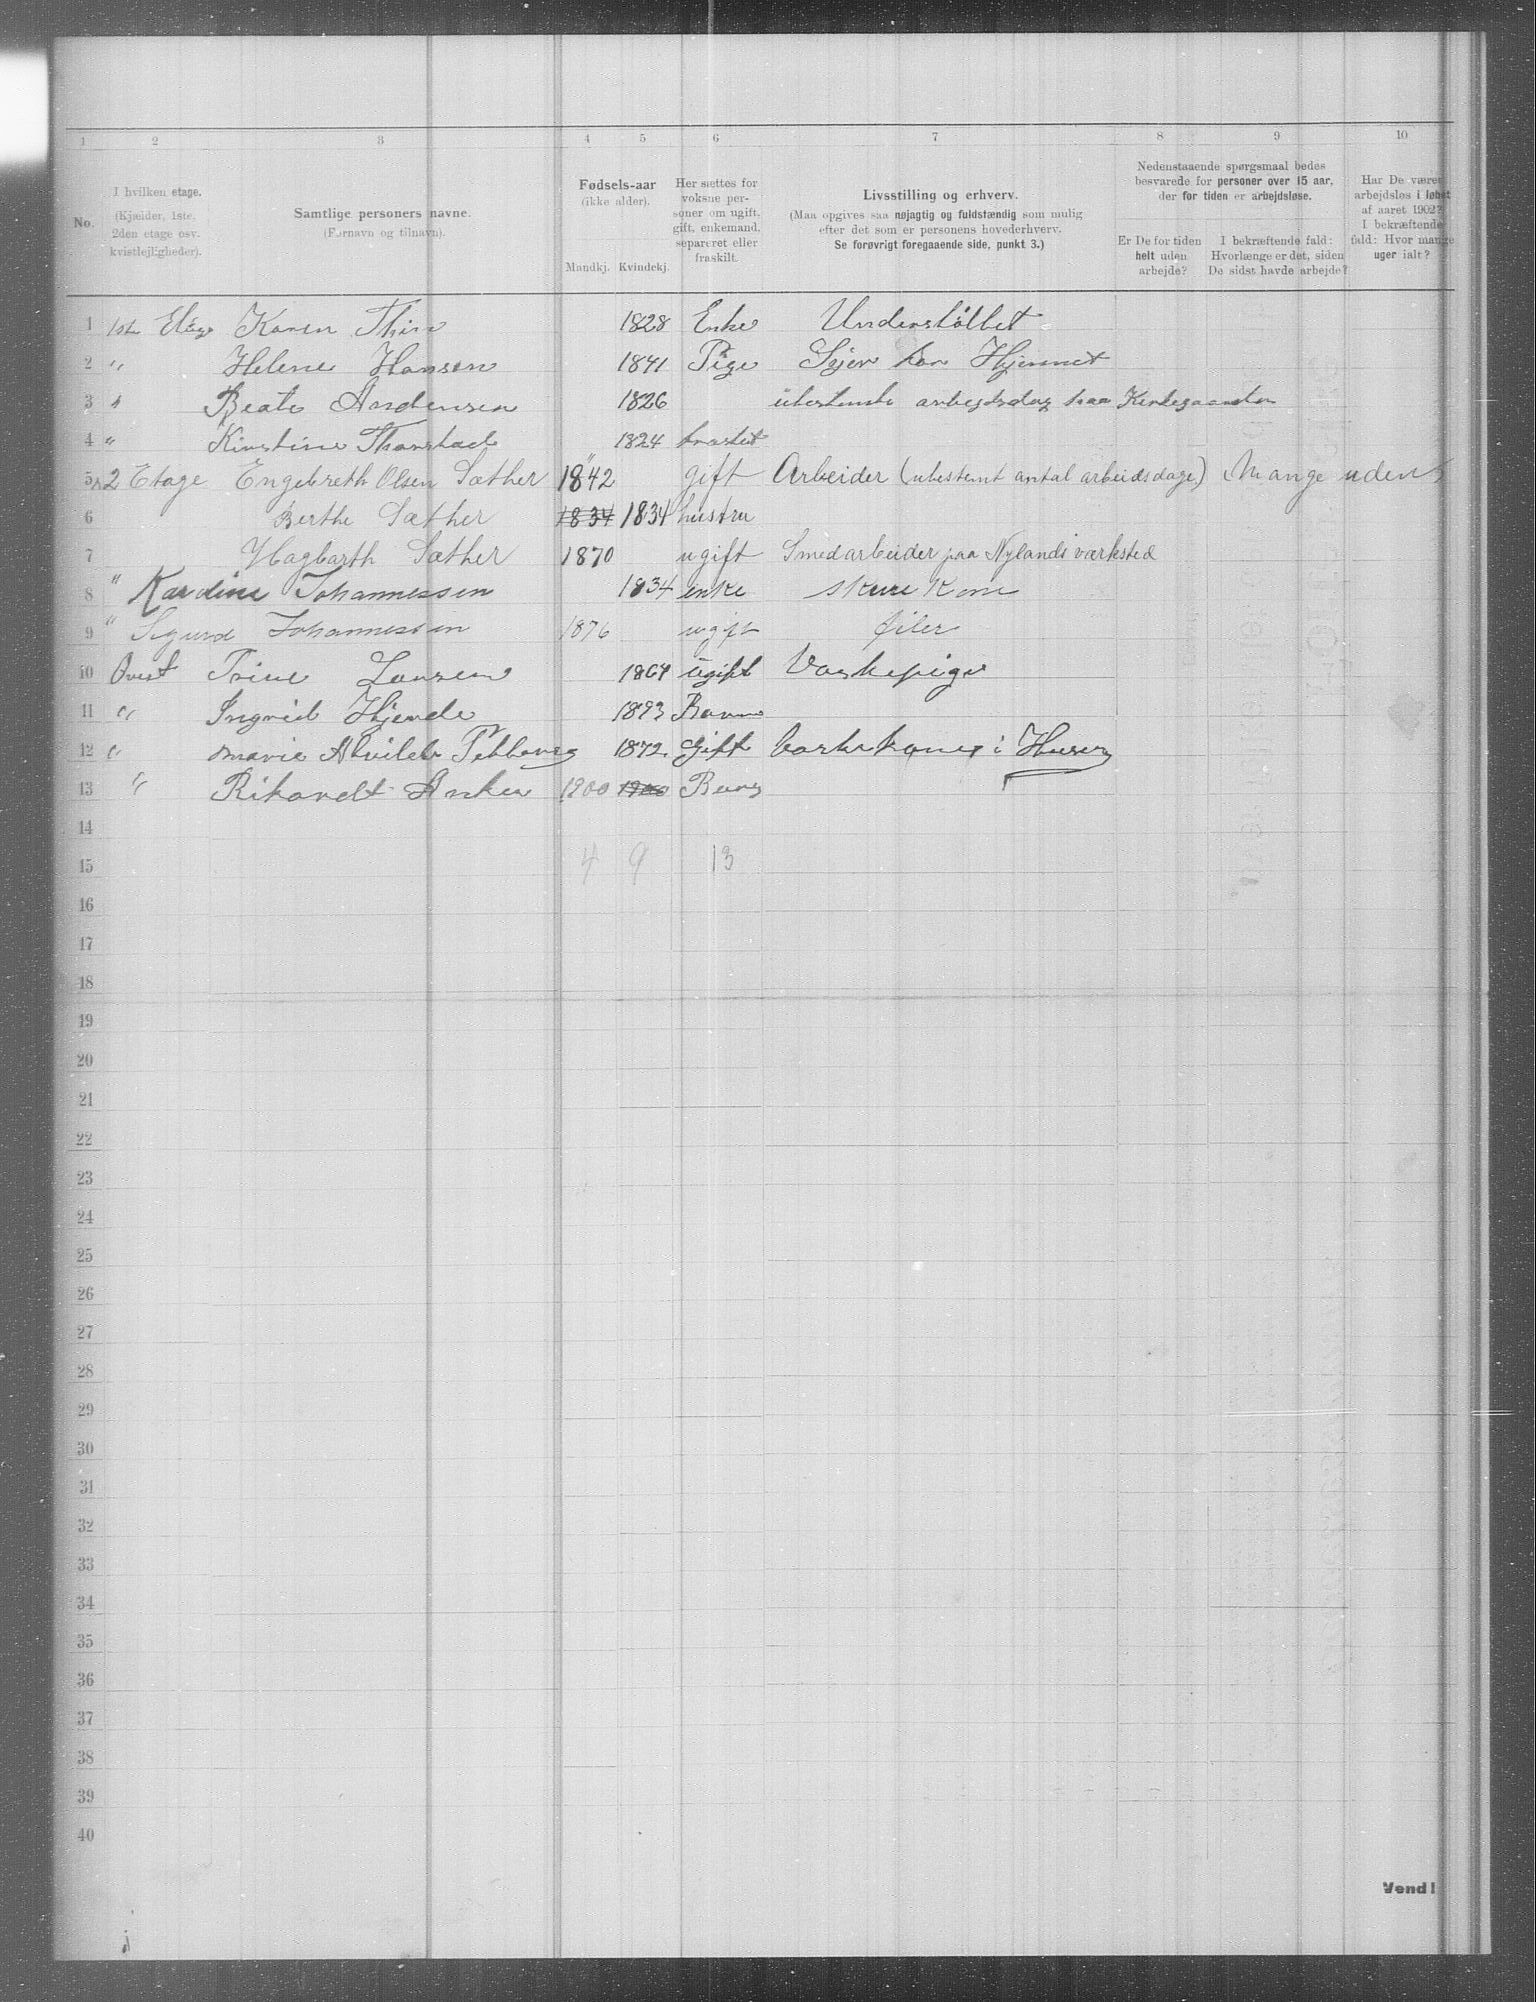 1 2 3 4 5 6 7 8 9 10
No.
I hvilken etage.
(Kjælder, 1ste,
2den etage osv.
kvistlejligheder).
Samtlige personers navne.
(Fornavn og tilnavn).
Fødsels-aar
(ikke alder).
Mandkj. Kvindekj.
Her sættes for
voksne per-
soner om ugift,
gift, enkemand,
separeret eller
fraskilt.
Livsstilling og erhverv.
(Maa opgives saa nøjagtig og fuldstændig som mulig
efter det som er personens hovederhverv.
Se forøvrigt foregaaende side, punkt 3.)
Nedenstaaende spørgsmaal bedes
besvarede for personer over 15 aar,
der for tiden er arbejdsløse.
Er De for tiden
helt uden
arbejde?
I bekræftende fald:
Hvorlænge er det, siden
De sidst havde arbejde?
Har De været
arbejdsløs i løbet
af aaret 1902?
I bekræftende
fald: Hvor mange
uger ialt?
1 1ste Etage Karen Thin 1828 Enke Understøttet
2 " Helene Hansen 1841 Pige Syer Hjemmet
3 " Beate Andersen 1826 ubestemte arbejdsdag paa Kirkegaarden
4 " Kirstine Thorstad 1824
5 2 Etage Engebreth Olsen Sæther 1842 gift Arbeider (ubestemt antal arbeidsdage) Mange uden
6 Berthe Sæther 1834 1834 hustru
7 Hagbarth Sæther 1870 ugift Smedarbeider paa Nylands værksted
8 " Karoline Johannessen 1834 enke skure Kone
9 " Sigurd Johannessen 1876 ugift filer
10 Qvist Trine Larsen 1864 ugift Vaskepige
11 " Ingrid Hjerde 1893 Barn
12 " Marie Alvilde 1872. Gift Vaskekone i Huser
13 " Rikardt Anker 1900 1900 Barn
14
15 4 9 13
16
17
18
19
20
21
22
23
24
25
26
27
28
29
30
31
32
33
34
35
36
37
38
39
40
Vend!